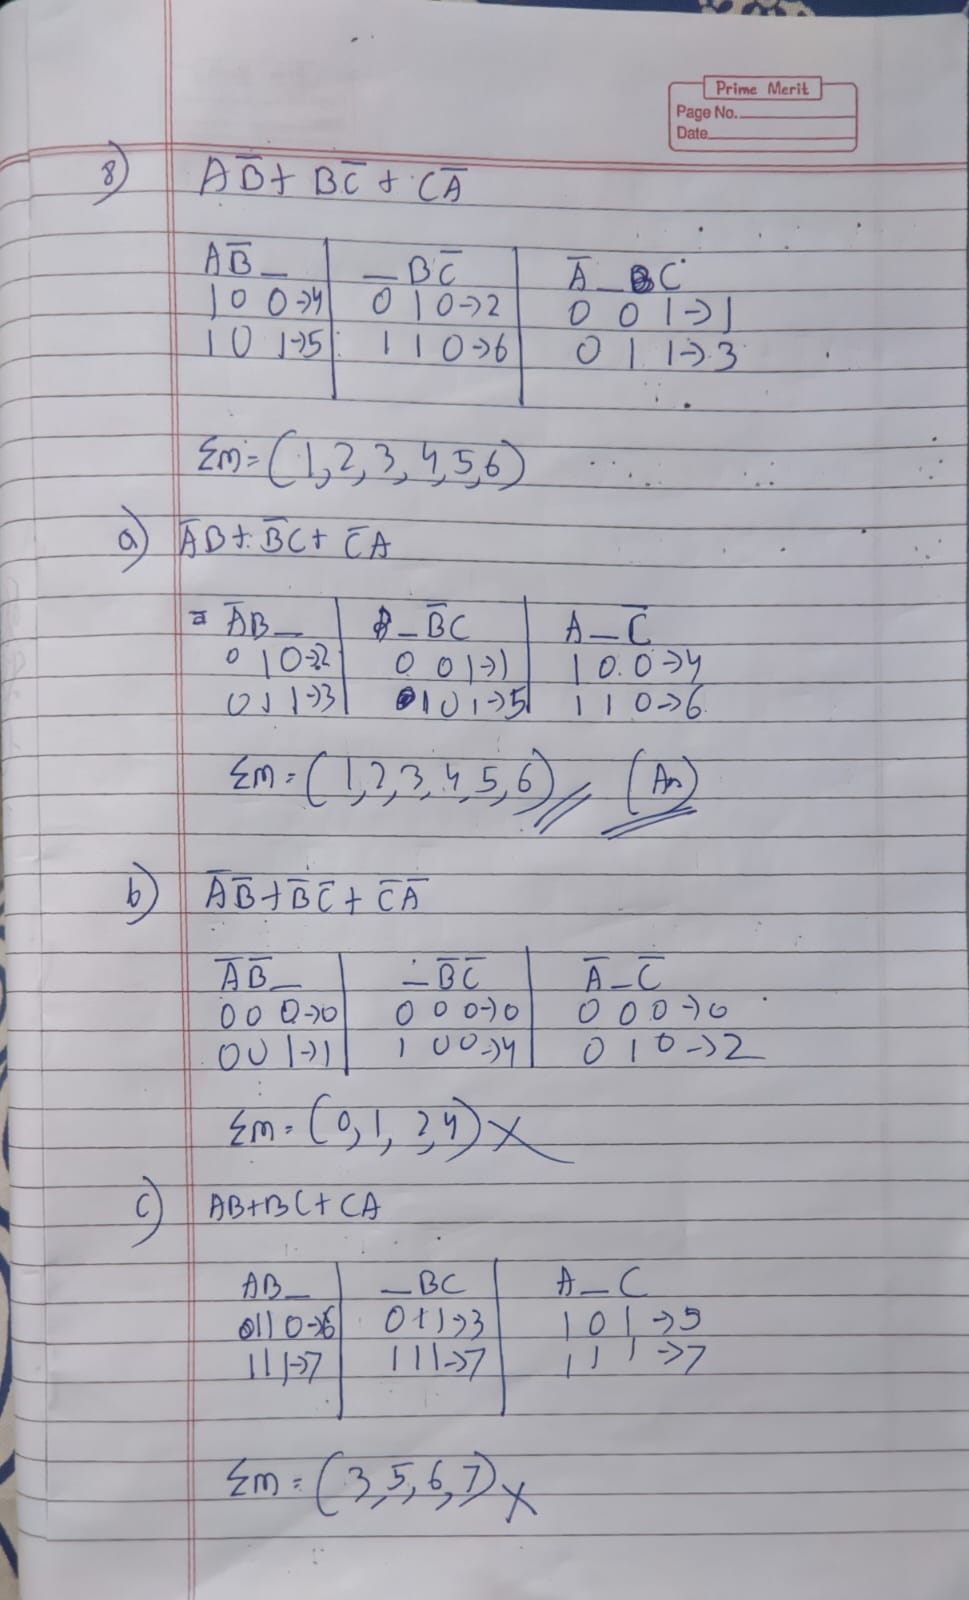 Prime Merit
Page No.
Date
8) AB̅ + BC̅ + CA̅
AB̅_ | _BC̅ | A̅_C
1 0 0→4 | 0 1 0→2 | 0 0 1→1
1 0 1→5 | 1 1 0→6 | 0 1 1→3
Σm = (1, 2, 3, 4, 5, 6)
a) A̅B + B̅C + C̅A
= A̅B_ | _B̅C | A_C̅
0 1 0→2 | 0 0 1→1 | 1 0 0→4
0 1 1→3 | 1 0 1→5 | 1 1 0→6
Σm = (1, 2, 3, 4, 5, 6) (An)
b) A̅B̅ + B̅C̅ + C̅A̅
A̅B̅_ | _B̅C̅ | A̅_C̅
0 0 0→0 | 0 0 0→0 | 0 0 0→0
0 0 1→1 | 1 0 0→4 | 0 1 0→2
Σm = (0, 1, 2, 4) ×
c) AB + BC + CA
AB_ | _BC | A_C
1 1 0→6 | 0 1 1→3 | 1 0 1→5
1 1 1→7 | 1 1 1→7 | 1 1 1→7
Σm = (3, 5, 6, 7) ×